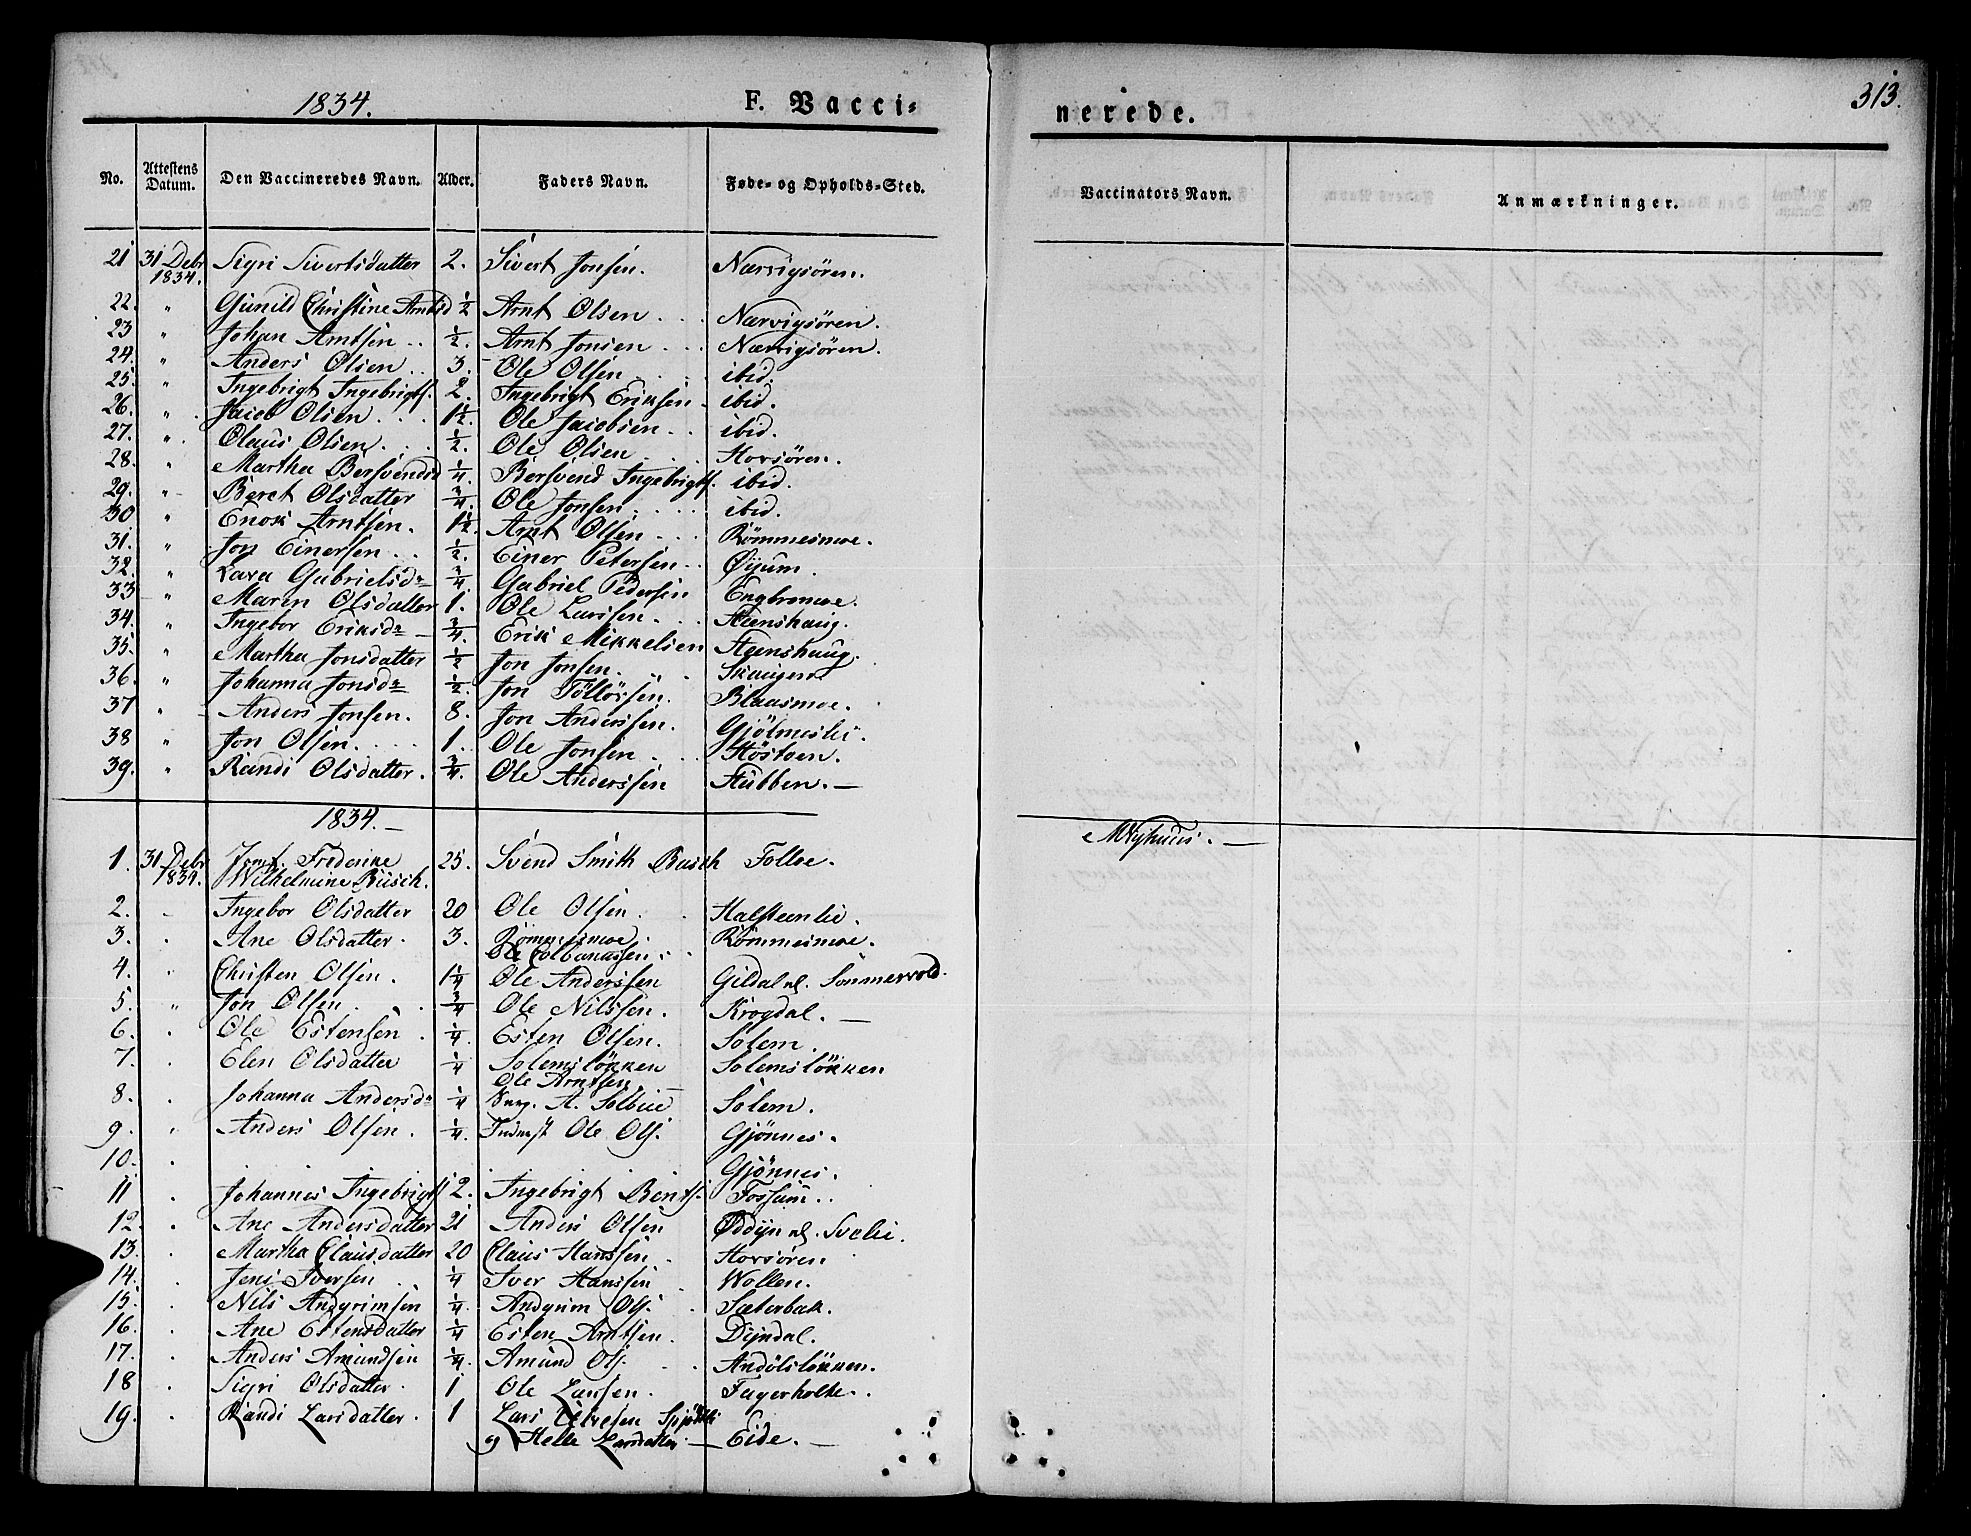 1834.
F. Vacci=
nerede.
313.
No. Attestens Datum. Den Vaccineredes Navn. Alder. Faders Navn. Føde- og Opholds-Sted. Vaccinators Navn. Anmærkninger.
21 31 Debr 1834. Sigri Sivertsdatter 2. Sivert Jonsen. Narvigsören.
22. " Gunild Christine Arntsd ½ Arnt Olsen Narvigsören.
23 " Johan Arntsen ½. Arnt Jonsen Narvigsören.
24. " Anders Olsen 3. Ole Olsen ibid.
25. " Ingebrigt Ingebrigts. 2. Ingebrigt Eriksen ibid.
26. " Jacob Olsen 1½. Ole Jacobsen ibid.
27. " Olaus Olsen ½. Ole Olsen Horsören.
28. " Martha Bersvendsd ¼. Bersvend Ingebrigts. ibid.
29. " Beret Olsdatter ¾. Ole Jonsen ibid.
30 " Enok Arntsen. 1½. Arnt Olsen Römmesmoe.
31. " Jon Einersen ½. Einer Petersen Øyum.
32. " Lava Gabrielsdr ¾. Gabriel Pedersen Engbromoe.
33 " Maren Olsdatter 1. Ole Larssen Steenshaug.
34. " Ingebor Eriksdr ¾. Erik Mikkelsen Steenshaug.
35. " Martha Jonsdatter ½ Jon Jonsen Skaugen
36. " Johanna Jonsdr ½. Jon Töllövsen. Blaasmoe.
37 " Anders Jonsen. 8. Jon Anderssen. Gjölmeslie.
38 " Jon Olsen 1. Ole Jonsen Höstoen.
39. " Randi Olsdatter. ¾. Ole Anderssen Stubben.
1834.
1. 31 Debr 1834. Jomf. Frederike Wilhelmine Busch. 25. Svend Smith Busch Solloe.
2. Ingebor Olsdatter 20 Ole Olsen Halsteenlie.
3. Ane Olsdatter 3. Römmesmoe. Römmesmoe.
Ole Colbanussen
4. Christen Olsen. 1¼ Ole Anderssen Gildal nl. Sommervold.
5. " Jon Olsen ¾ Ole Nilssen. Krogdal.
6. Ole Estensen ¼. Esten Olsen. Solem.
7. Elen Olsdatter ¼ Solemslökken Solemslökken
Ole Arntsen
8. Johanna Andersdr ¼ A. Solbue Solem.
9. Anders Olsen. ¼. Ole Ols. Gjönnes.
10. Gjönnes.
11 Johannes Ingebrigts 2. Ingebrigt Bents. Fossum.
12. Ane Andersdatter 21 Anders Olsen Øddyn nl. Svelie.
13. Martha Clausdatter 20 Claus Hanssen Horsören
14. Jens Iversen ¼ Iver Hanssen Wollen.
15. Nils Andgrimsen ¼. Andgrim Ols. Sæterbak.
16. Ane Estensdatter ¼ Esten Arntsen. Dyndal.
17. Anders Amundsen ¼. Amund Ols. Andölslökken.
18 Sigri Olsdatter 1 Ole Larssen. Fagerholte.
19. Randi Larsdatter. 1 Lars
og Helle Larsdatter Eide.